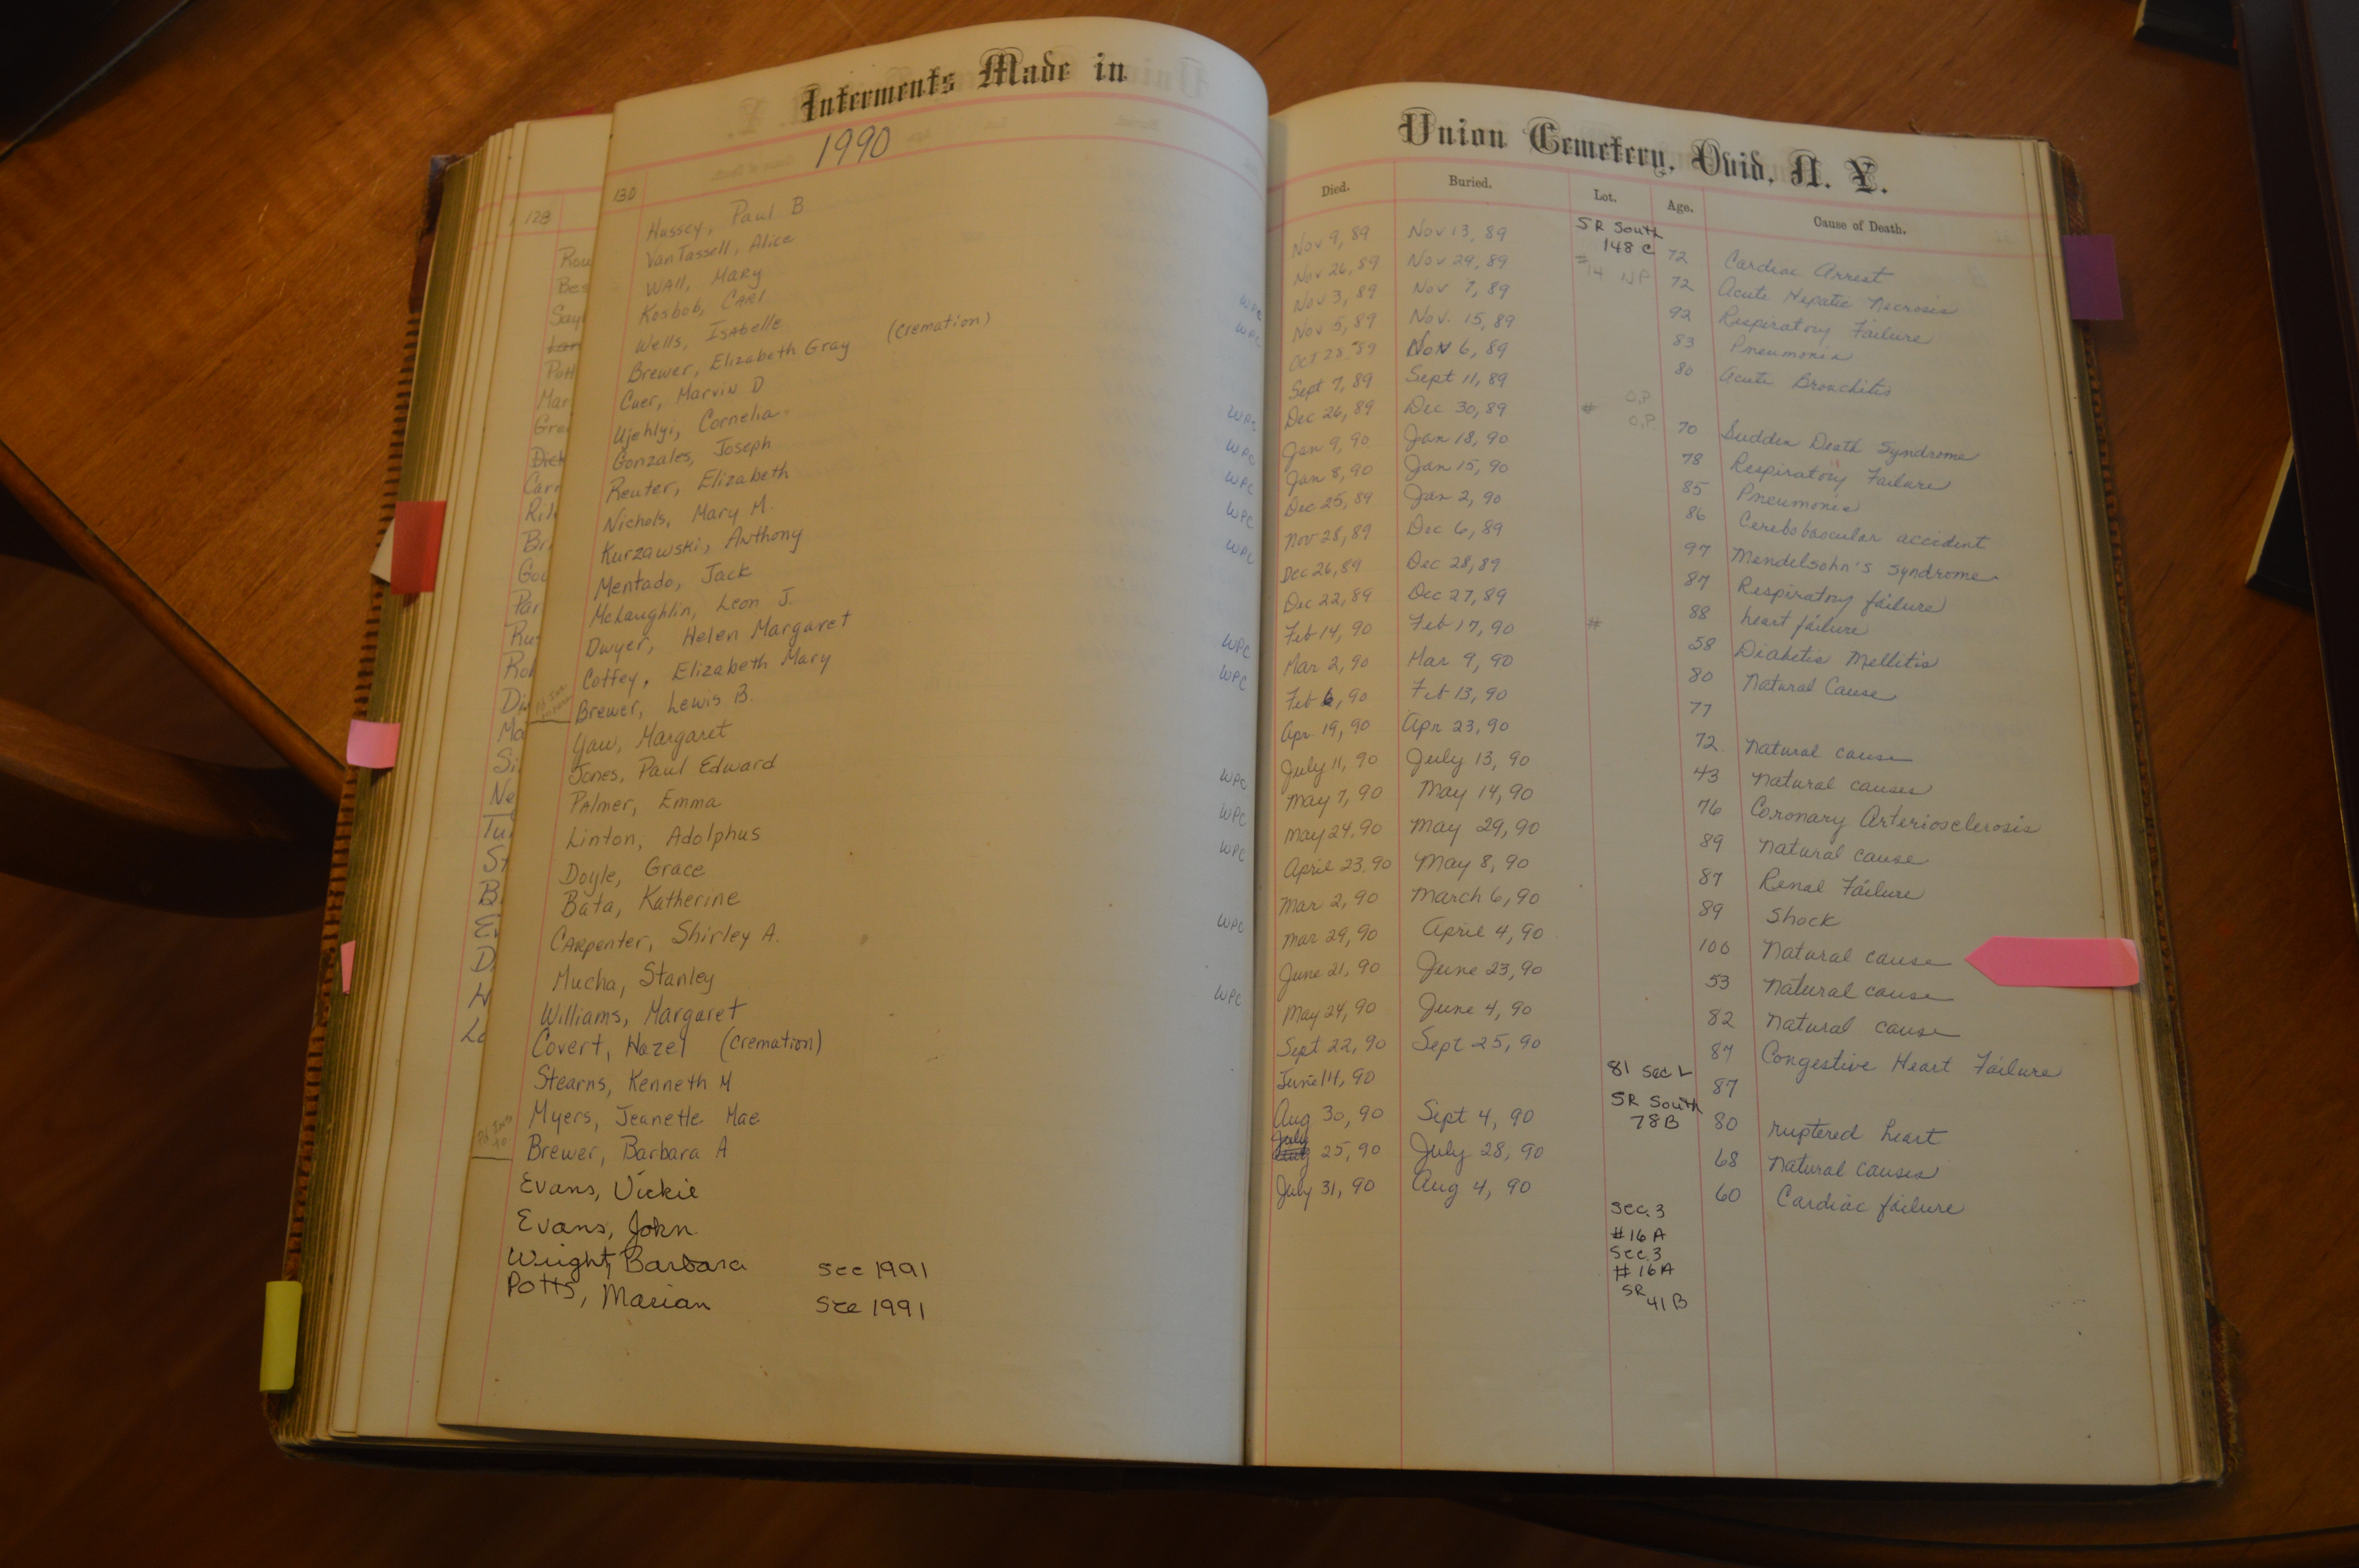 Interments Made in
1990
128
130
Hussey, Paul B
VanTassell, Alice
Wall, Mary WPC
Kosbob, Carl WPC
Wells, Isabelle
Brewer, Elizabeth Gray (cremation)
Cuer, Marvin D
Ujehlyi, Cornelia WPC
Gonzales, Joseph WPC
Reuter, Elizabeth WPC
Nichols, Mary M. WPC
Kurzawski, Anthony WPC
Mentado, Jack
McLaughlin, Leon J.
Dwyer, Helen Margaret WPC
Coffey, Elizabeth Mary WPC
Brewer, Lewis B.
Yaw, Margaret
Jones, Paul Edward WPC
Palmer, Emma WPC
Linton, Adolphus WPC
Doyle, Grace
Bata, Katherine WPC
Carpenter, Shirley A.
Mucha, Stanley WPC
Williams, Margaret
Covert, Hazel (cremation)
Stearns, Kenneth M
Myers, Jeanette Mae
Brewer, Barbara A
Evans, Vickie
Evans, John
Wright, Barbara see 1991
Potts, Marian see 1991
Union Cemetery, Ovid, N. Y.
Died. Buried. Lot. Age. Cause of Death.
Nov 9, 89 Nov 13, 89 SR South 148 C 72 Cardiac Arrest
Nov 26, 89 Nov 29, 89 14 NP 72 Acute Hepatic Necrosis
Nov 3, 89 Nov 7, 89 92 Respiratory Failure
Nov 5, 89 Nov. 15, 89 83 Pneumonia
Oct 28, 89 Nov 6, 89 80 Acute Bronchitis
Sept 7, 89 Sept 11, 89 O.P.
Dec 26, 89 Dec 30, 89 # O.P. 70 Sudden Death Syndrome
Jan 9, 90 Jan 18, 90 78 Respiratory Failure
Jan 8, 90 Jan 15, 90 85 Pneumonia
Dec 25, 89 Jan 2, 90 86 Cerebobascular accident
Nov 28, 89 Dec 6, 89 97 Mendelsohn's Syndrome
Dec 26, 89 Dec 28, 89 87 Respiratory failure
Dec 22, 89 Dec 27, 89 88 heart failure
Feb 14, 90 Feb 17, 90 # 58 Diabetis Mellitis
Mar 2, 90 Mar 9, 90 80 Natural Cause
Feb 6, 90 Feb 13, 90 77
Apr. 19, 90 Apr 23, 90 72 natural cause
July 11, 90 July 13, 90 43 natural causes
May 7, 90 May 14, 90 76 Coronary Arteriosclerosis
May 24, 90 May 29, 90 89 natural cause
April 23, 90 May 8, 90 87 Renal Failure
Mar 2, 90 March 6, 90 89 Shock
Mar 29, 90 April 4, 90 100 Natural cause
June 21, 90 June 23, 90 53 natural cause
May 24, 90 June 4, 90 82 natural cause
Sept 22, 90 Sept 25, 90 87 Congestive Heart Failure
June 14, 90 81 Sec L 87
Aug 30, 90 Sept 4, 90 SR South 78B 80 ruptered heart
July 25, 90 July 28, 90 68 natural causes
July 31, 90 Aug 4, 90 60 Cardiac failure
Sec. 3
#16A
Sec. 3
#16A
SR
41B